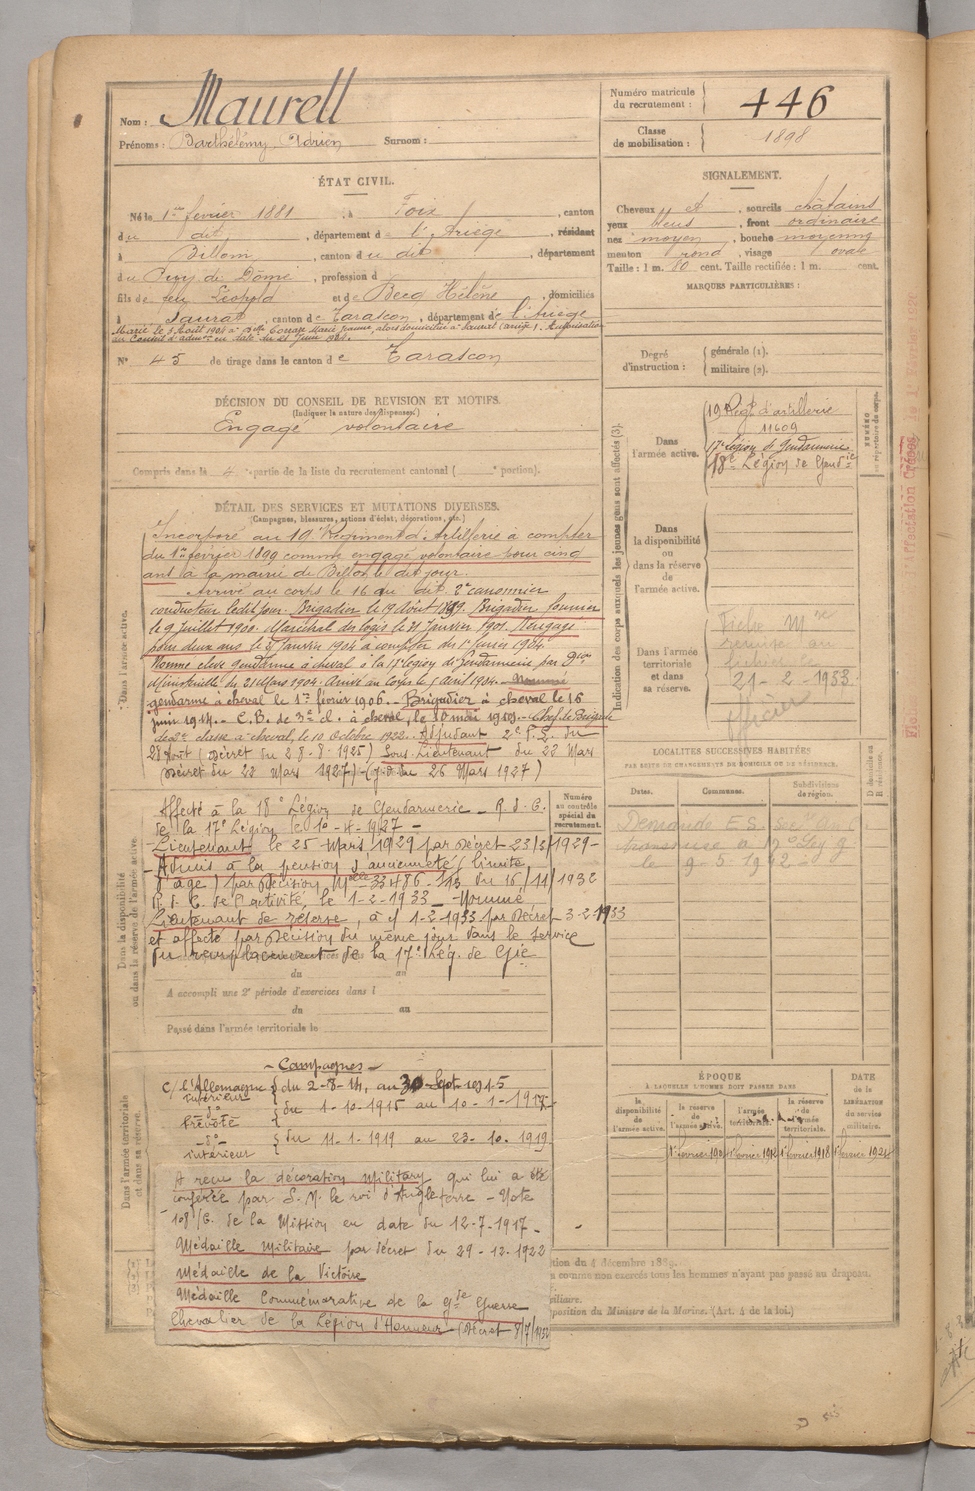 Nom : Maurell
Prénoms : Barthélémy, Adrien Surnom :
Numéro matricule du recrutement : 446
Classe de mobilisation : 1898
ÉTAT CIVIL.
Né le 1er février 1881, à Foix, canton
du dit, département de l'Ariège, résidant
à Billom, canton du dit, département
du Puy de Dôme, profession d
fils de feu Léopold et de Becq Hélène, domiciliés
à Saurat, canton de Tarascon, département de l'Ariège
Marié le 3 Août 1904 à Delle Marie Jeanne, alors domiciliée à Saurat (Ariège). Autorisation
du Conseil d'admon en date du 21 Juin 1904.
N° 45 de tirage dans le canton de Tarascon
SIGNALEMENT.
Cheveux et, sourcils châtains
yeux bleus, front ordinaire
nez moyen, bouche moyenne
menton rond, visage ovale
Taille : 1 m. 80 cent. Taille rectifiée : 1 m. cent.
MARQUES PARTICULIÈRES :
Degré d'instruction : générale (1).
militaire (2).
DÉCISION DU CONSEIL DE REVISION ET MOTIFS.
(Indiquer la nature des dispenses.)
Engagé volontaire
Compris dans la 4e partie de la liste du recrutement cantonal ( e portion).
DÉTAIL DES SERVICES ET MUTATIONS DIVERSES.
(Campagnes, blessures, actions d'éclat, décorations, etc.)
Dans l'armée active.
Incorporé au 19e Régiment d'Artillerie à compter
du 1er février 1899 comme engagé volontaire pour cinq
ans à la mairie de Billom le dit jour.
Arrivé au corps le 16 au dit. 2e canonnier
conducteur ledit jour. Brigadier le 19 Août 1899. Brigadier fourrier
le 9 Juillet 1900. Maréchal des logis le 21 Janvier 1901. Rengagé
pour deux ans le 5 Janvier 1904 à compter du 1er février 1904.
Nommé élève gendarme à cheval à la 17e Légion de Gendarmerie par Dion
Ministérielle du 21 Mars 1904. Arrivé au Corps le 1 avril 1904. Nommé
gendarme à cheval le 1er février 1906. Brigadier à cheval le 16
juin 1914. C.B. de 3e cl. à cheval, le 10 mai 1919. Chef de Brigade
de 2e classe à cheval, le 10 Octobre 1922. Adjudant du
28 Août (Décret du 28-8-1925) Sous-Lieutenant du 22 Mars
(Décret du 22 Mars 1927) (J.O. du 26 Mars 1927)
Indication des corps auxquels les jeunes gens sont affectés (3).
Dans l'armée active.
19 Régt d'artillerie
11609
17e Légion de Gendarmerie
18e Légion de Gendie
NUMÉRO au répertoire du corps.
Dans la disponibilité ou dans la réserve de l'armée active.
Dans l'armée territoriale et dans sa réserve.
Fiche Mle
remise au
fichier le
21-2-1933
officier
LOCALITÉS SUCCESSIVES HABITÉES
PAR SUITE DE CHANGEMENTS DE DOMICILE OU DE RÉSIDENCE.
Dates. Communes. Subdivisions de région. D domicile ou R résidence.
le 9-5-1932
Dans la disponibilité ou dans la réserve de l'armée active.
Numéro au contrôle spécial du recrutement.
Affecté à la 18e Légion de Gendarmerie
de la 17e Légion le 10-4-1927
Lieutenant le 25 Mars 1929 par Décret 23/3/1929
Admis à la pension d'ancienneté (limite
d'âge) par Décision Mlle 33486 du 16/11/1932
R.d.C. de l'activité, le 1-2-1933 Nommé
Lieutenant de réserve, à cr 1-2-1933 par Décret 3-2-1933
et affecté par Décision du même jour dans le service
du remplacement de la 17e Lég. de Gie
du au
A accompli une 2e période d'exercices dans l
du au
Passé dans l'armée territoriale le
Dans l'armée territoriale et dans sa réserve.
Campagnes
C/ l'Allemagne du 2-8-14, au 30 Sept 1915
intérieur
do du 1-10-1915 au 10-1-1917
Prévôté
do du 11-1-1919 au 23-10-1919
intérieur
A reçu la décoration Military qui lui a été
conférée par S.M. le roi d'Angleterre - Note
108/C. de la Mission en date du 12-7-1917
Médaille Militaire par décret du 29-12-1922
Médaille de la Victoire
Médaille Commémorative de la Gde Guerre
Chevalier de la Légion d'Honneur (Décret 8/7/1932
ÉPOQUE
À LAQUELLE L'HOMME DOIT PASSER DANS
la disponibilité de l'armée active. la réserve de l'armée active. l'armée territoriale. la réserve de l'armée territoriale.
DATE de la LIBÉRATION du service militaire.
1er février 1904 1er février 1918 1er février 1924
tion du 4 décembre 1889.
u comme non exercés tous les hommes n'ayant pas passé au drapeau.
xiliaire.
sposition du Ministre de la Marine. (Art. 4 de la loi.)